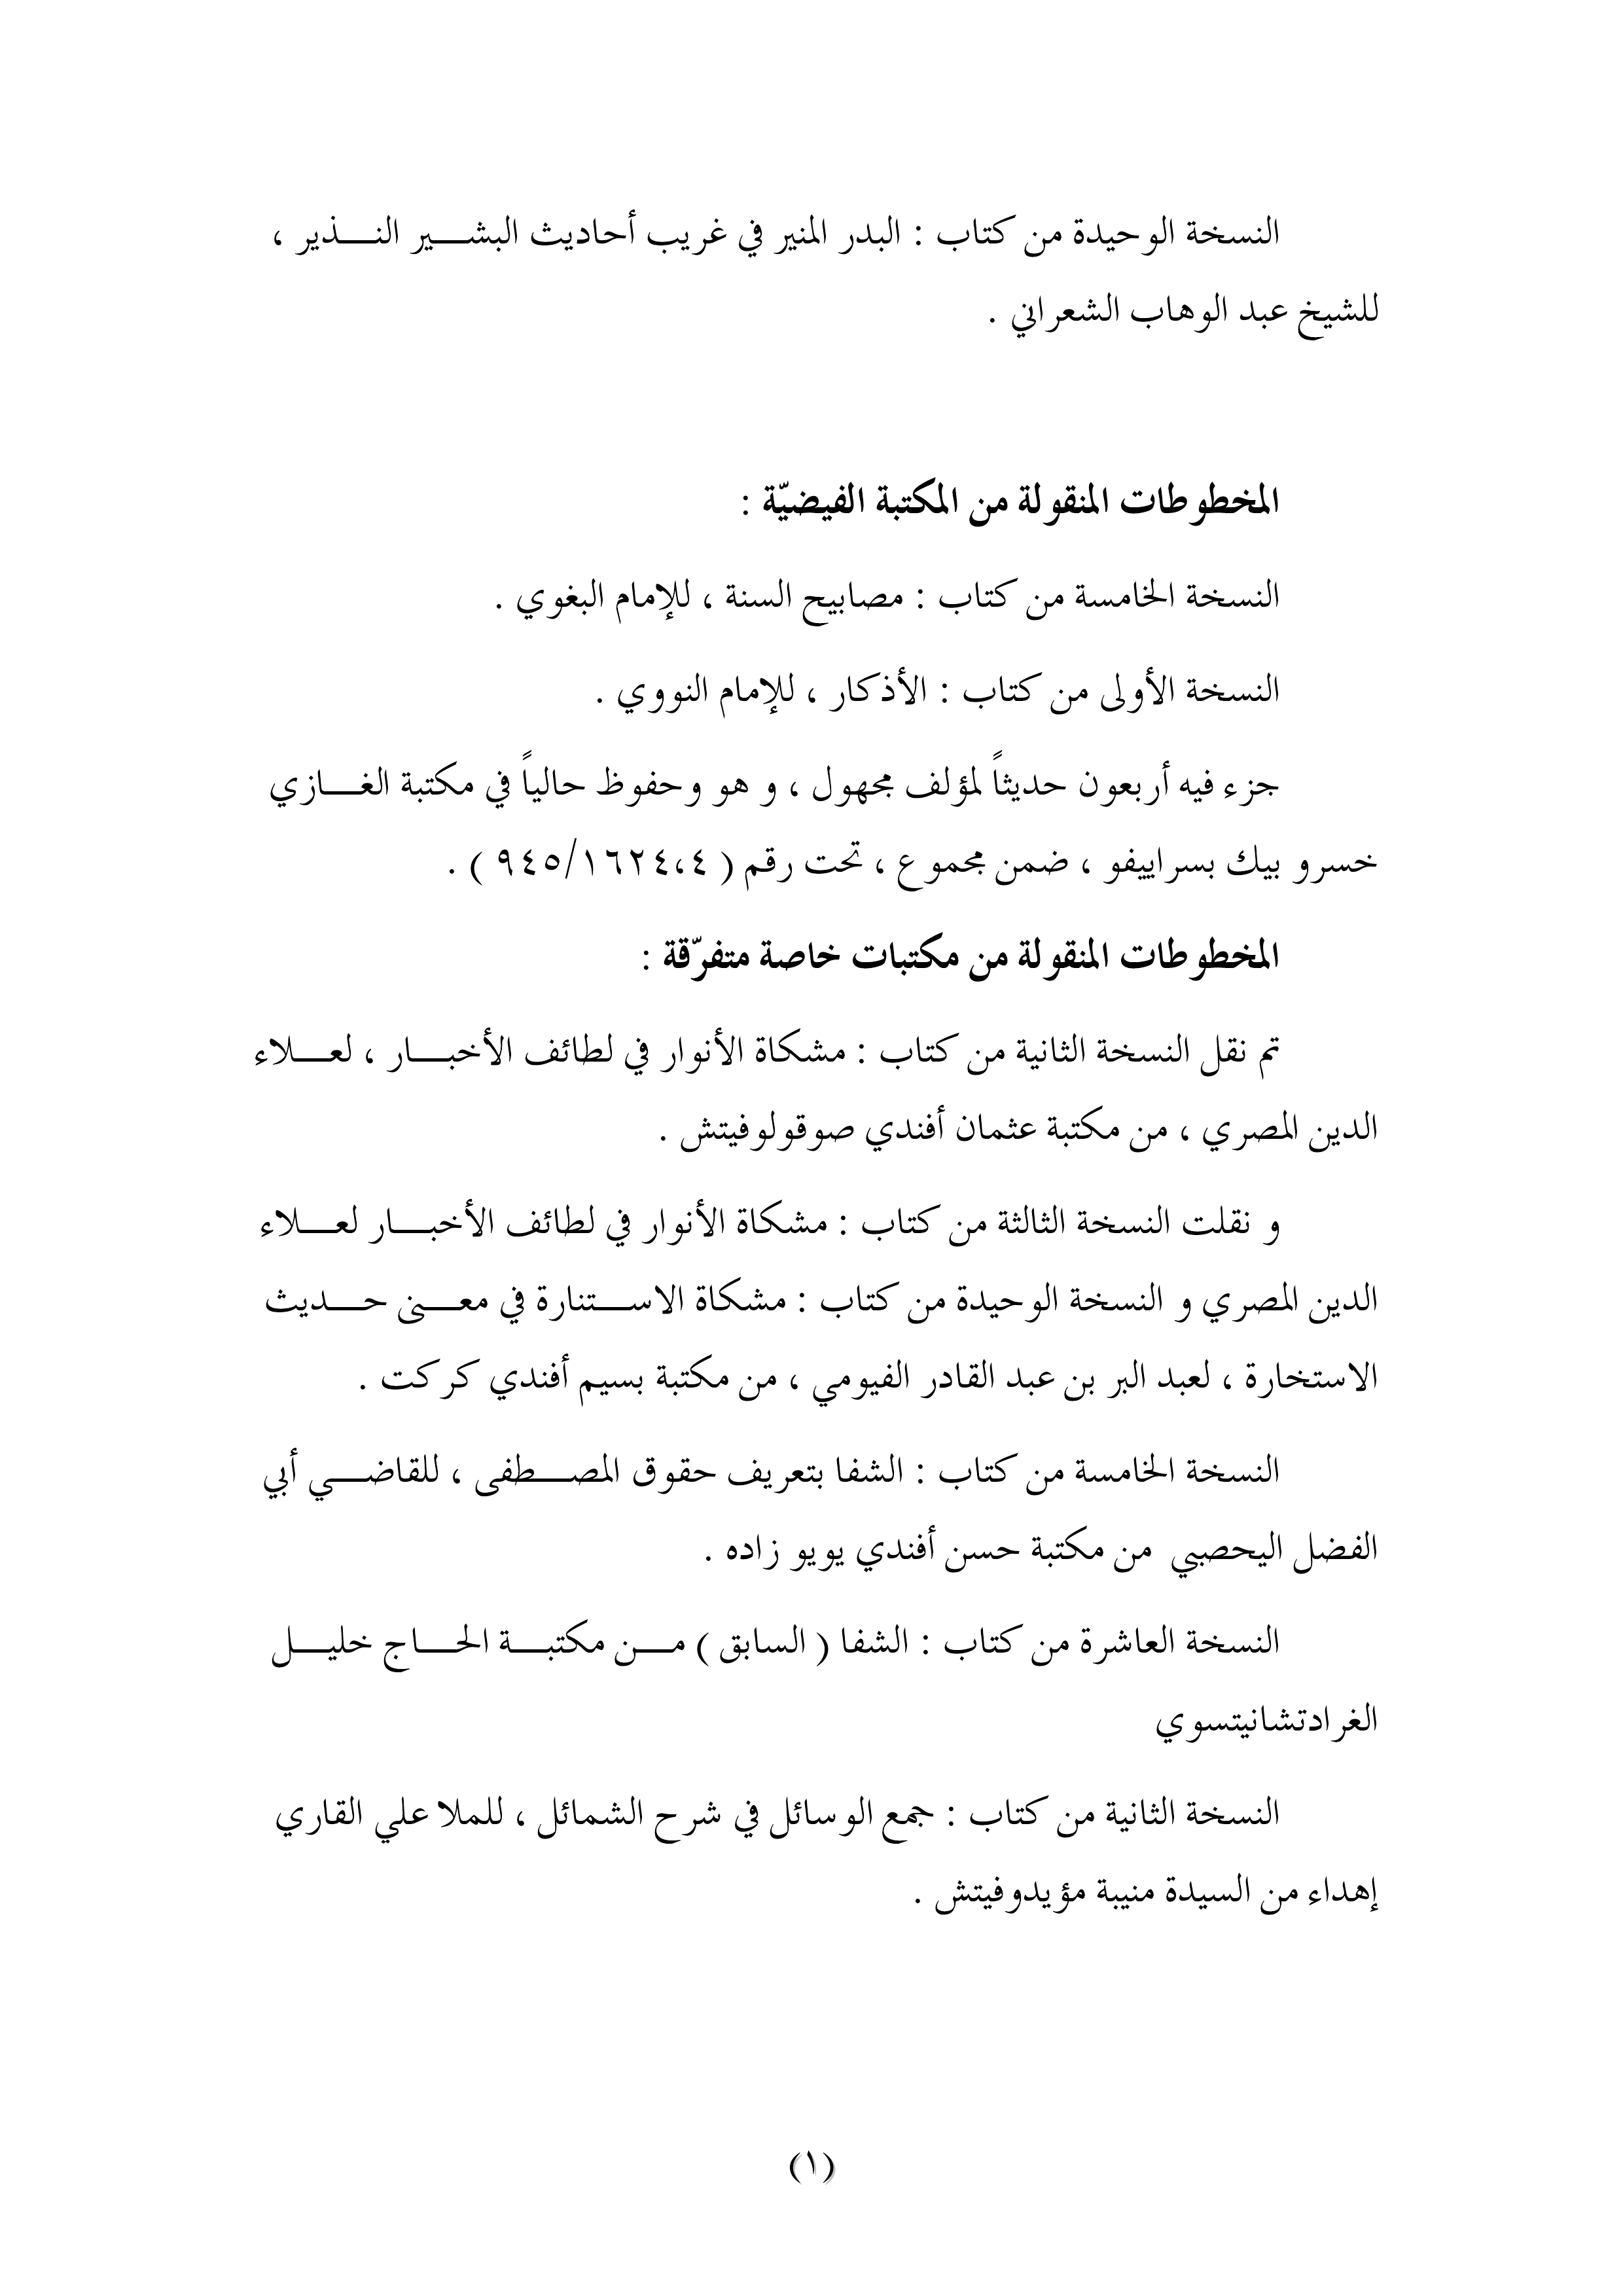 النسخة الوحيدة من كتاب : البدر المنير في غريب أحاديث البشير النذير ،
للشيخ عبد الوهاب الشعراني .
المخطوطات المنقولة من المكتبة الفيضيّة :
النسخة الخامسة من كتاب : مصابيح السنة ، للإمام البغوي .
النسخة الأولى من كتاب : الأذكار ، للإمام النووي .
جزء فيه أربعون حديثاً لمؤلف مجهول ، و هو وحفوظ حالياً في مكتبة الغازي
خسرو بيك بسراييفو ، ضمن مجموع ، تحت رقم ( ٩٤٥/١٦٢٤،٤ ) .
المخطوطات المنقولة من مكتبات خاصة متفرّقة :
تم نقل النسخة الثانية من كتاب : مشكاة الأنوار في لطائف الأخبار ، لعلاء
الدين المصري ، من مكتبة عثمان أفندي صوقولوفيتش .
و نقلت النسخة الثالثة من كتاب : مشكاة الأنوار في لطائف الأخبار لعلاء
الدين المصري و النسخة الوحيدة من كتاب : مشكاة الاستنارة في معنى حديث
الاستخارة ، لعبد البر بن عبد القادر الفيومي ، من مكتبة بسيم أفندي كركت .
النسخة الخامسة من كتاب : الشفا بتعريف حقوق المصطفى ، للقاضي أبي
الفضل اليحصبي من مكتبة حسن أفندي يويو زاده .
النسخة العاشرة من كتاب : الشفا ( السابق ) من مكتبة الحاج خليل
الغرادتشانيتسوي
النسخة الثانية من كتاب : جمع الوسائل في شرح الشمائل ، للملا علي القاري
إهداء من السيدة منيبة مؤيدوفيتش .
(١)